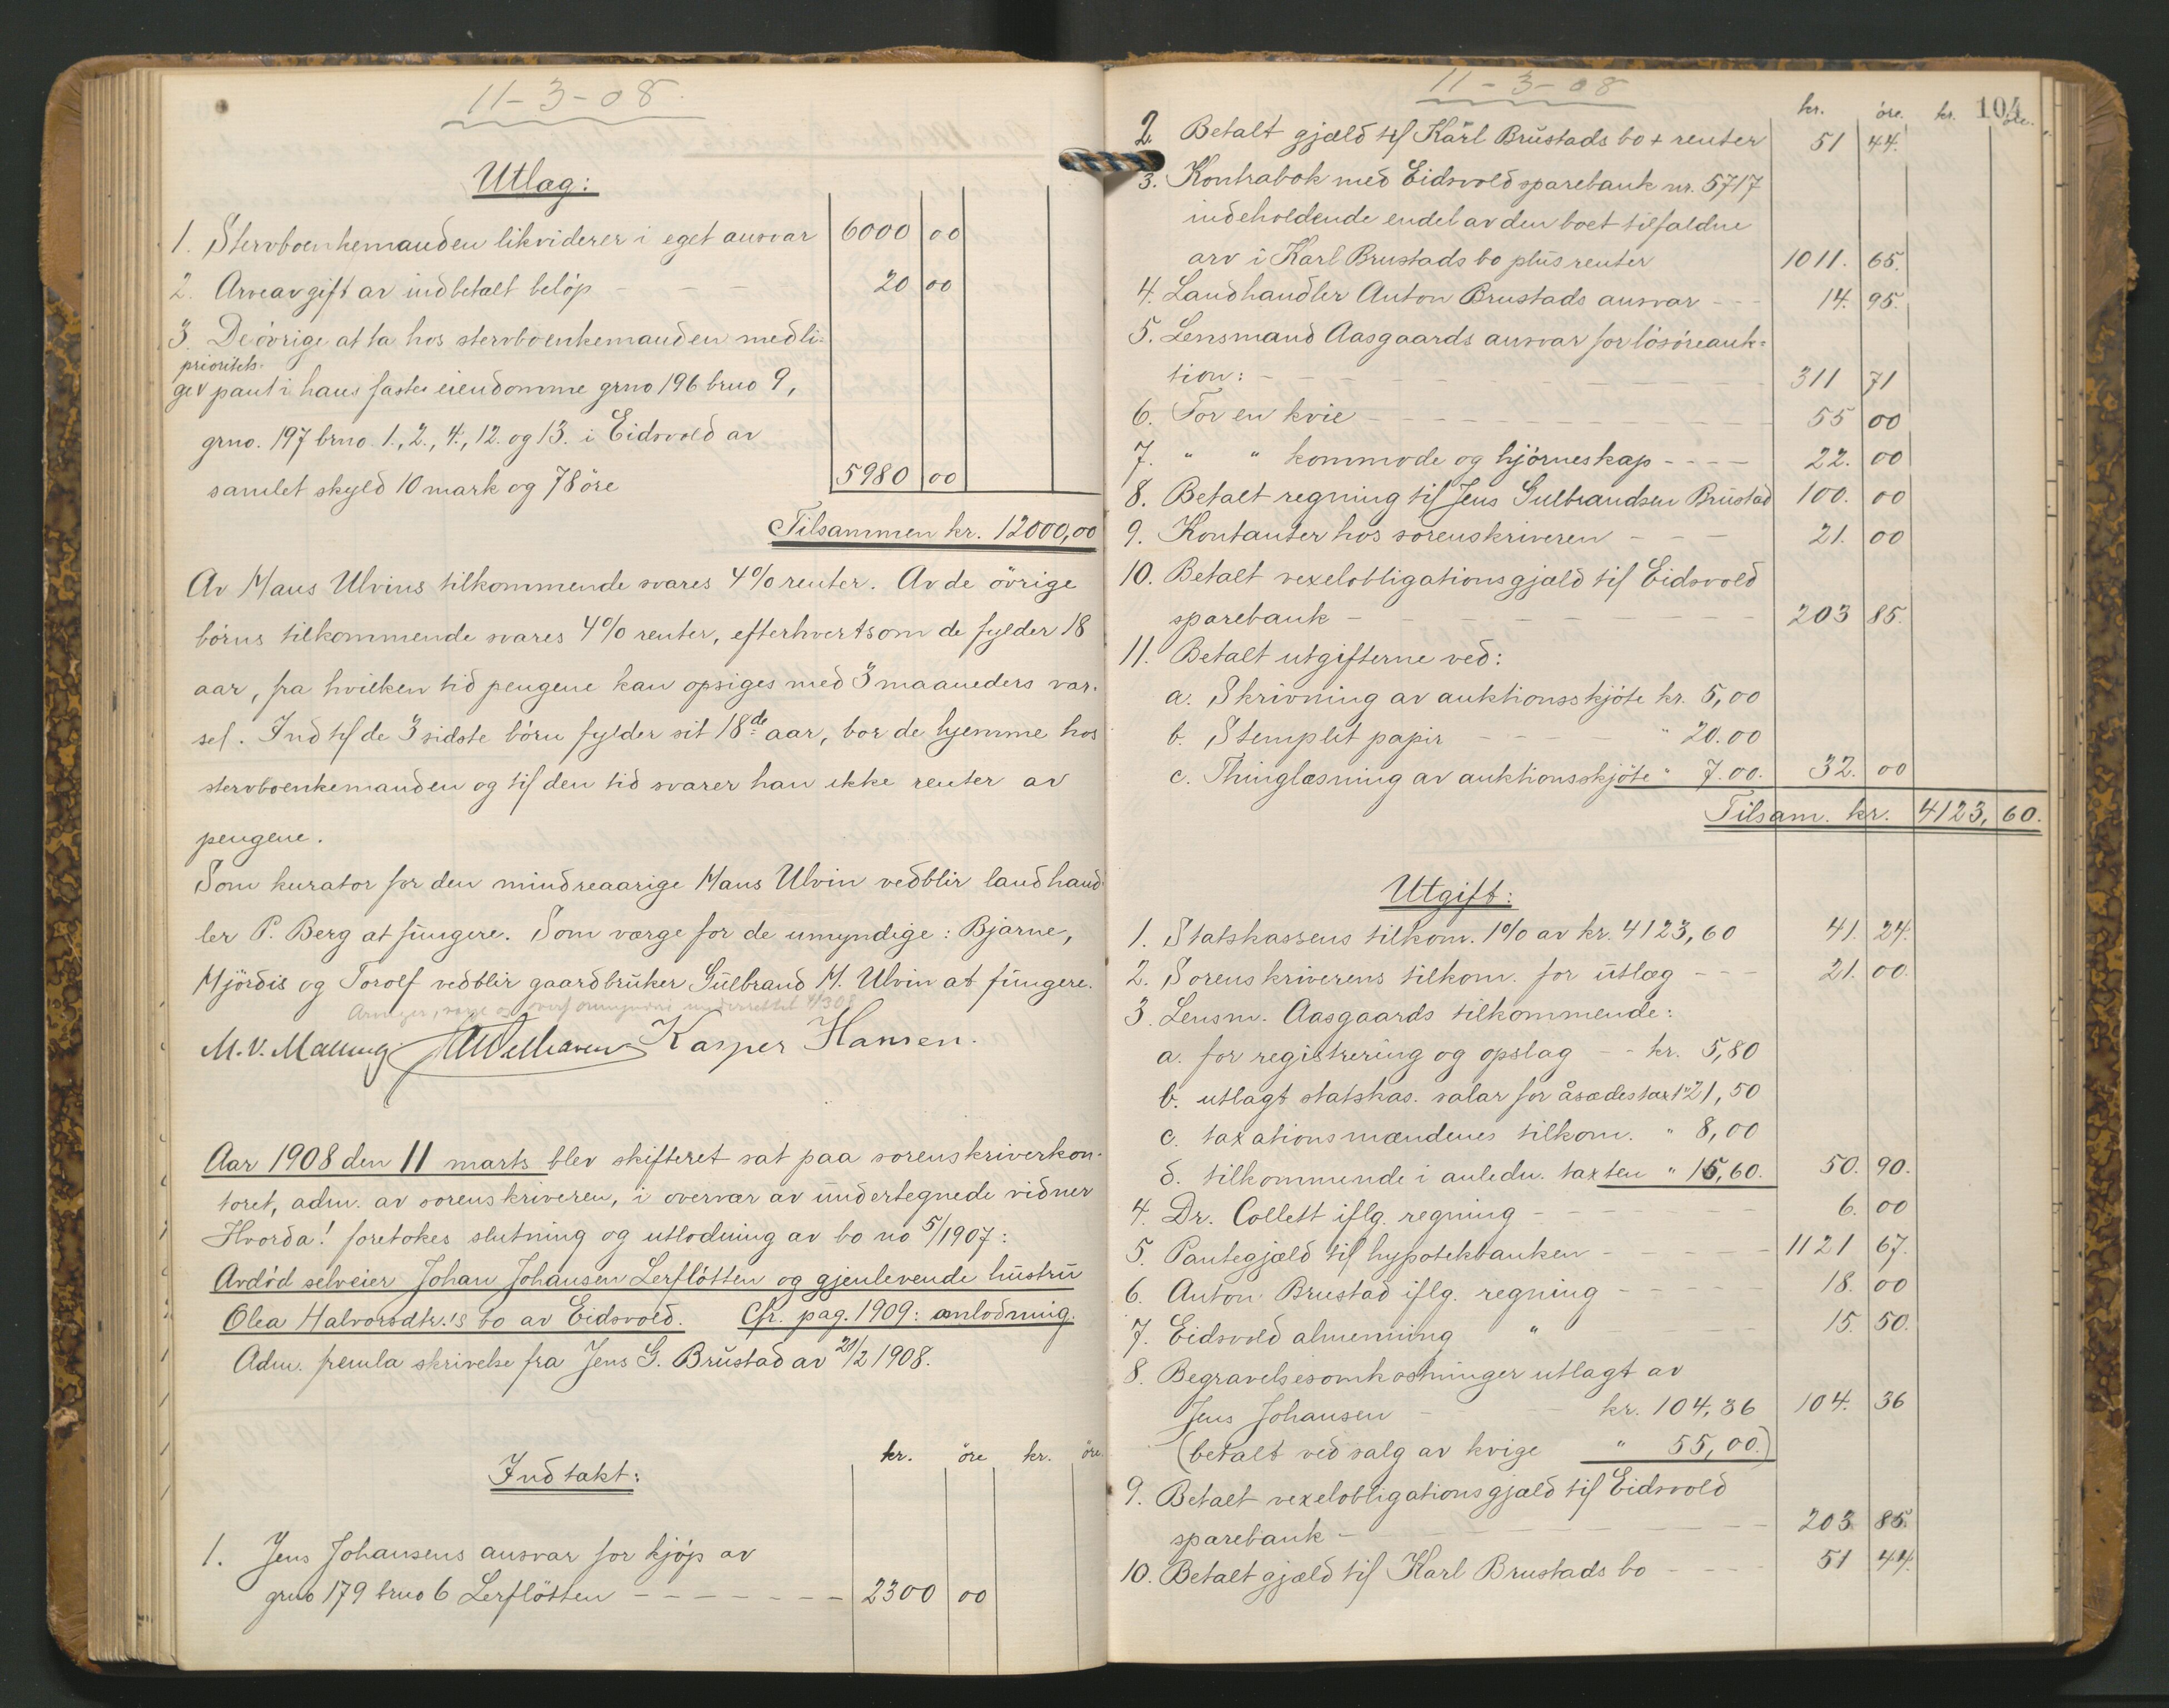 11-3-08.
Utlæg:
1. Stervboenkemanden likviderer i eget ansvar 6000 00
2. Arveavgift av indbetalt beløp - - - 20 00
3. De øvrige at ta hos stervboenkemanden med li-
prioritets-
gev pant i hans faste eiendomme grno 196 brno 9,
grno. 197 brno 1., 2., 4., 12. og 13. i Eidsvold av
samlet skyld 10 mark og 78 øre 5980 00
Tilsammen kr. 12000,00
Av Hans Ulvins tilkommende svares 4% renter. Av de øvrige
børns tilkommende svares 4% renter, efterhvert som de fylder 18
aar, fra hvilken tid pengene kan opsiges med 3 maaneders var-
sel. Ind til de 3 sidste børn fylder sit 18de aar, bor de hjemme hos
stervboenkemanden og til den tid svarer han ikke renter av
pengene.
Som kurator for den mindreaarige Hans Ulvin vedblir landhand-
ler P. Berg at fungere. Som værge for de umyndige: Bjarne,
Hjørdis og Torolf vedblir gaardbruker Gulbrand H. Ulvin at fungere.
Arvinger, værge og overformynderi underrettet 4/3 08
M. V. Malling Welhaven Kasper Hansen.
Aar 1908 den 11 marts blev skifteret sat paa sorenskriverkon-
toret, adm. av sorenskriveren, i overvær av undertegnede vidner
Hvorda! foretokes slutning og utlodning av bo no 5/1907:
Avdød selveier Johan Johansen Lerfløtten og gjenlevende hustru
Olea Halvorsdtr.'s bo av Eidsvold. Cfr. pag. 1909: omlodning.
Adm. fremla skrivelse fra Jens G. Brustad av 21/2 1908.
kr. øre kr. øre.
Indtækt:
1. Jens Johansens ansvar for kjøp av
grno 179 brno 6 Lerfløtten - - - - - - - 2300 00
11-3-08
104
kr. øre. kr. øre.
2. Betalt gjæld til Karl Brustads bo + renter 51 44.
3. Kontrabok med Eidsvold sparebank nr. 5717
indeholdende endel av den boet tilfaldne
arv i Karl Brustads bo plus renter 1011. 65.
4. Landhandler Anton Brustads ansvar - - - 14. 95.
5. Lensmand Aasgaards ansvar for løsøreauk-
tion: - - - - - - - - 311 71
6. For en kvie - - - - - - - - 55 00
7. " " kommode og hjørneskap - - - - 22. 00
8. Betalt regning til Jens Gulbrandsen Brustad 100. 00
9. Kontanter hos sorenskriveren - - - 21. 00
10. Betalt vexelobligationsgjæld til Eidsvold
sparebank - - - - - - - - 203 85.
11. Betalt utgifterne ved:
a. Skrivning av auktionsskjøte kr. 5,00
b. Stemplet papir - - - - " 20.00
c. Thinglæsning av auktionsskjøte " 7.00. 32. 00
Tilsam. kr. 4123, 60.
Utgift:
1. Statskassens tilkom. 1% av kr. 4123,60 41. 24.
2. Sorenskriverens tilkom. for utlæg - - - 21. 00.
3. Lensm. Aasgaards tilkommende:
a. for registrering og opslag - - kr. 5,80
b. utlagt statskas. salar for åsædestaxt " 21,50
c. taxationsmændenes tilkom. " 8,00
d. tilkommende i anledn. taxten " 15,60. 50. 90.
4. Dr. Collett iflg. regning - - - - - - 6. 00
5. Pantegjæld til hypotekbanken - - - - - 1121 67.
6. Anton Brustad iflg. regning - - - - - 18. 00
7. Eidsvold almenning " - - - 15. 50.
8. Begravelsesomkostninger utlagt av
Jens Johansen - - kr. 104,36 104. 36
(betalt ved salg av kvige " 55,00.)
9. Betalt vexelobligationsgjæld til Eidsvold
sparebank - - - - - - - - 203 85.
10. Betalt gjæld til Karl Brustads bo - - - 51 44.